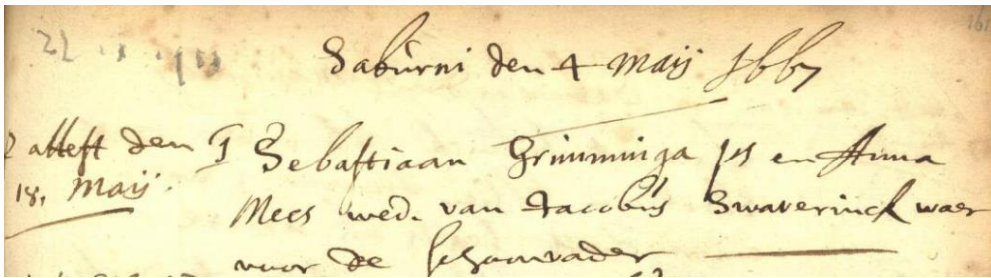 Saturni den 4 Maij 1667
attest den
18. Maij.
1 Sebastiaan Grimminga JM en Anna
Mees wed. van Jacobus Swaverinck waer
voor de schoonvader